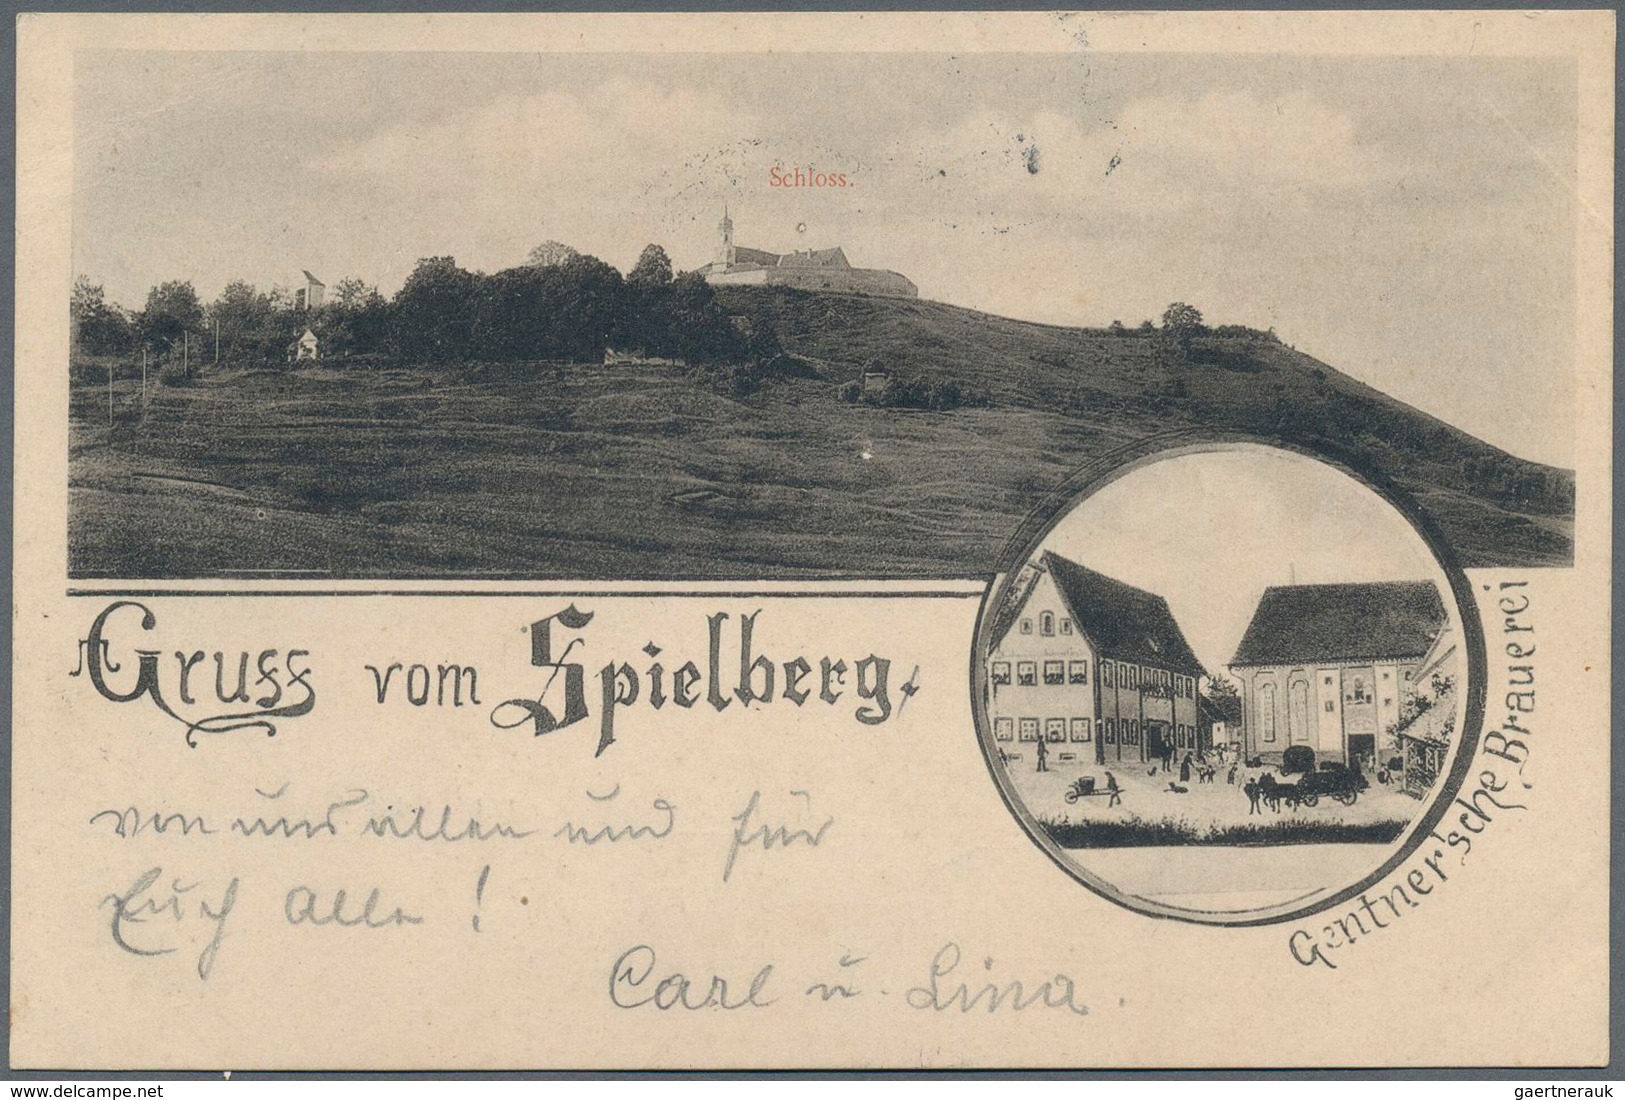 Schloss.
Gruss vom Spielberg,
Gentner'sche Brauerei
von uns allen und für
Euch Alle !
Carl u. Lina.
delcampe.net
gaertnerauk